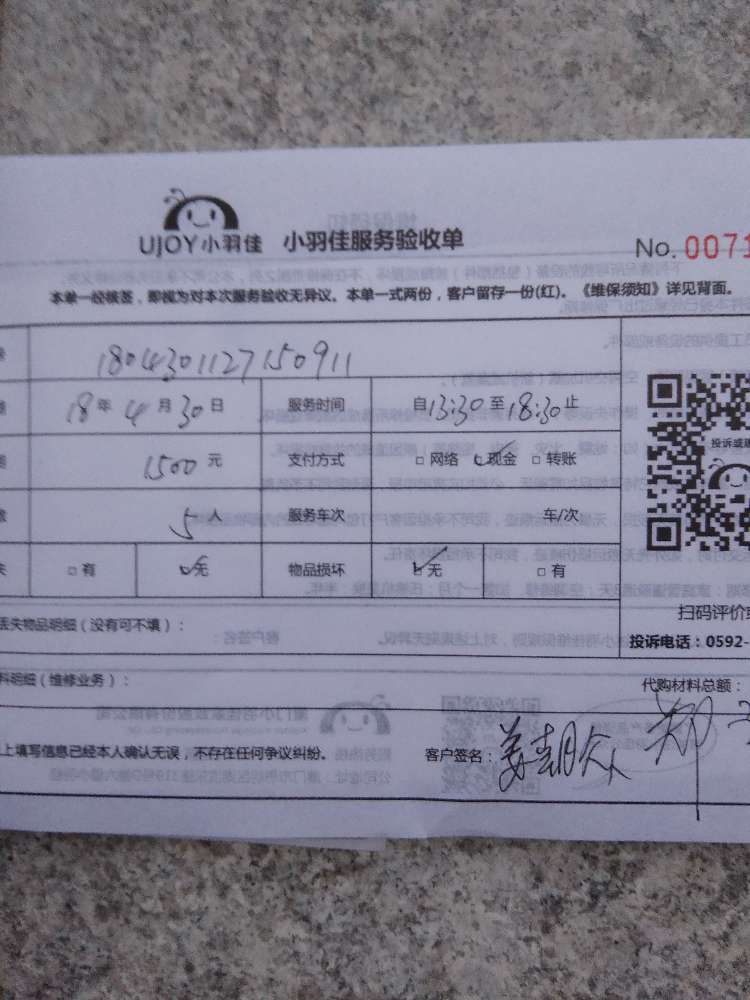 UJOY小羽佳 小羽佳服务验收单
No. 0071
本单一经核签，即视为对本次服务验收无异议。本单一式两份，客户留存一份(红)。《维保须知》详见背面。
1804301127150911
18年4月30日 服务时间 自13:30至18:30止
1500元 支付方式 □网络 ☑现金 □转账
5人 服务车次 车/次
□有 ☑无 物品损坏 ☑无 □有
丢失物品明细（没有可不填）：
扫码评价或
投诉电话：0592-
料明细（维修业务）：
代购材料总额：
上填写信息已经本人确认无误，不存在任何争议纠纷。 客户签名：
投诉或建